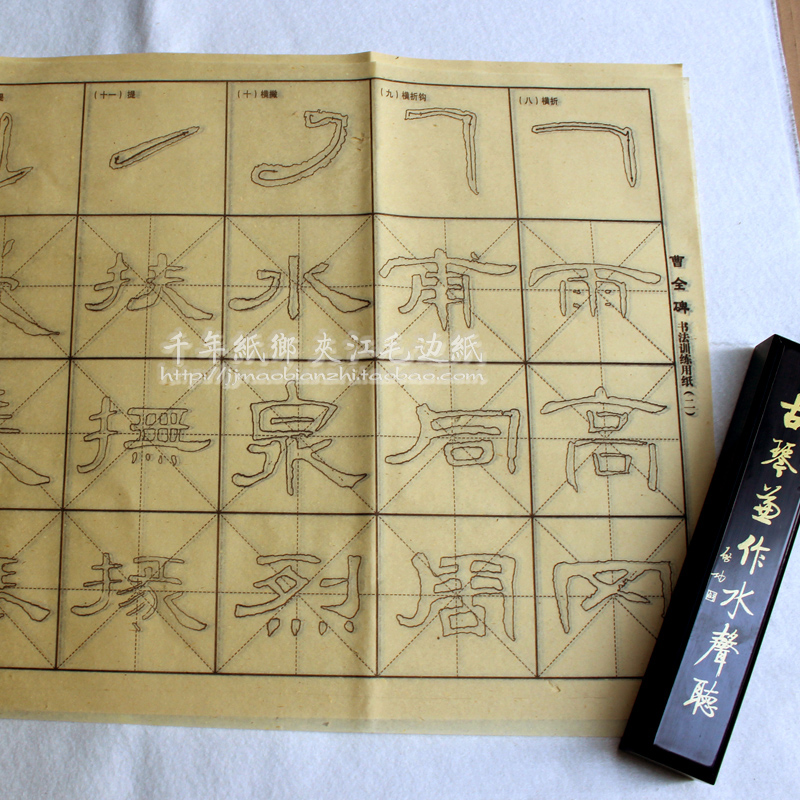 曹全碑 书法训练用纸(二)
(八)横折
雨
高
内
(九)横折钩
甫
同
周
(十)横撇
水
泉
烈
(十一)提
扶
撫
掾
千年紙鄉 夹江毛边紙
http://jjmaobianzhi.taobao.com/
古琴兼作水聲聽
启功